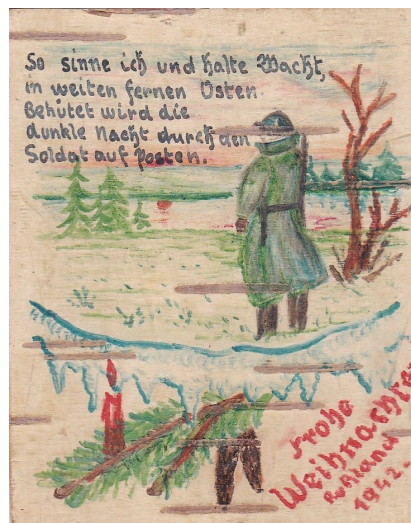 So sinne ich und halte Wacht,
in weiten fernen Osten.
Behütet wird die
dunkle Nacht durch den
Soldat auf Posten.
Frohe
Weihnachten
Rußland
1942.